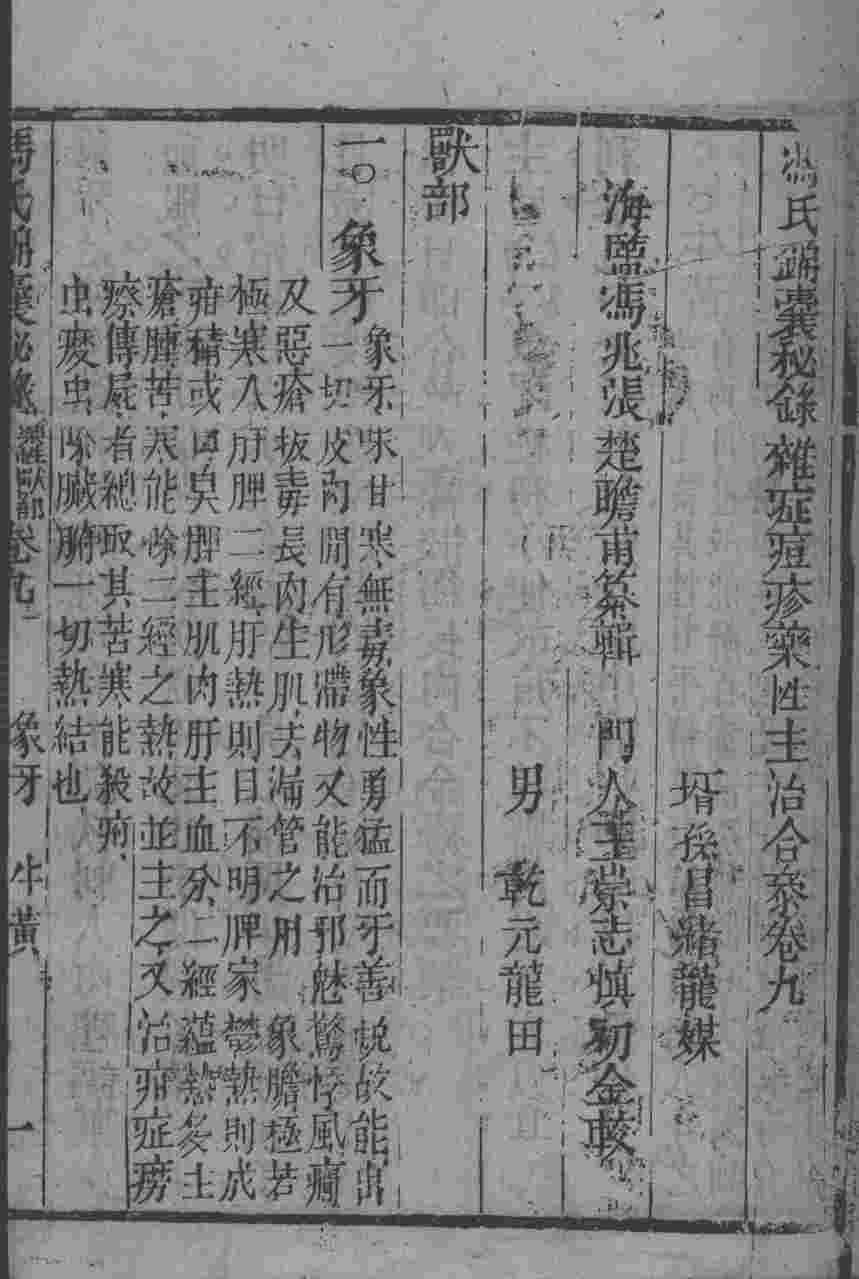 馮氏錦囊秘錄雜症痘疹藥性主治合參卷九
壻孫昌緒龍媒
海鹽馮兆張楚瞻甫纂輯　門人王崇志慎初仝較
男　乾元龍田
獸部
一○象牙
象牙味甘寒無毒象性勇猛而牙善脫故能出
一切皮肉間有形滯物又能治邪魅驚悸風癇
及惡瘡拔毒長肉生肌去漏管之用　象膽極苦
極寒入肝脾二經肝熱則目不明脾家鬱熱則成
疳積或口臭脾主肌肉肝主血分二經蘊熱多生
瘡腫苦寒能除二經之熱故並主之又治疳症癆
瘵傳屍者總取其苦寒能殺疳
虫癆虫除臟腑一切熱結也
馮氏錦囊秘錄　獸部卷九　象牙　牛黃　一